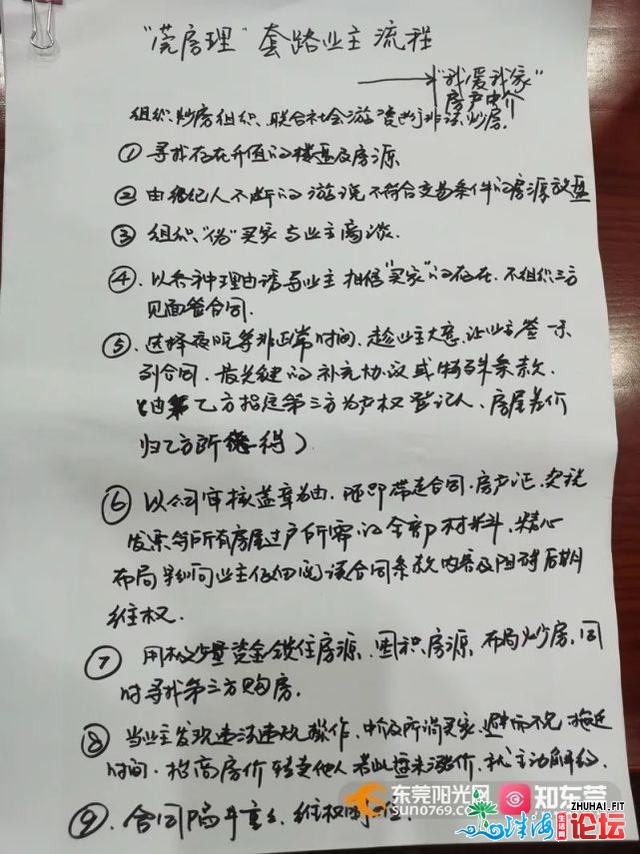 "莞房理"套路业主流程
"我爱我家"
房产中介
组织炒房组织、联合社会游资进行非法炒房.
① 寻找存在升值的楼盘及房源
② 由经纪人不断的游说不符合交易条件的房源放盘
③ 组织"伪"买家与业主商谈.
④. 以各种理由诱导业主相信"买家"的存在.不组织三方
见面签合同.
⑤. 选择夜晚等非正常时间.趁业主大意.让业主签一系
列合同.最关键的补充协议或特殊条款
(由 乙方指定第三方为产权登记人、房屋差价
归乙方所 得)
⑥ 以公司审核盖章为由.随即带走合同.房产证.契税
发票等所有房屋过户所需的全部材料.精心
布局 业主仔细阅读合同条款内容及阻碍后期
维权.
⑦ 用极少量资金锁住房源.囤积房源.布局炒房.同
时寻找第三方购房.
⑧ 当业主发现违法违规操作.中介及所谓买家.避而不见 拖延
时间.抬高房价转卖他人 若此盘未涨价.就主动解约.
⑨. 合同陷井重重.维权困
东莞阳光网
sun0769.com
知东莞
珠海论坛
生活网
ZHUHAI.FIT